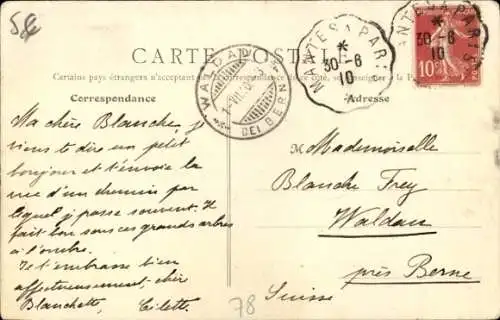 CARTE POSTALE
Certains pays étrangers n'acceptent pas
Correspondance
Adresse
MANTES A PARIS
30-6
10
MANTES A PARIS
30-6
10
WALDAU
BEI BERN
10
Ma chère Blanche, je
viens te dire un petit
bonjour et t'envoie la
vue d'un chemin par
lequel je passe souvent. Il
fait bon sous ces grands arbres
à l'ombre.
Je t'embrasse bien
affectueusement chère
Blanchette,
Mademoiselle
Blanche Frey
Waldau
près Berne
Suisse
78